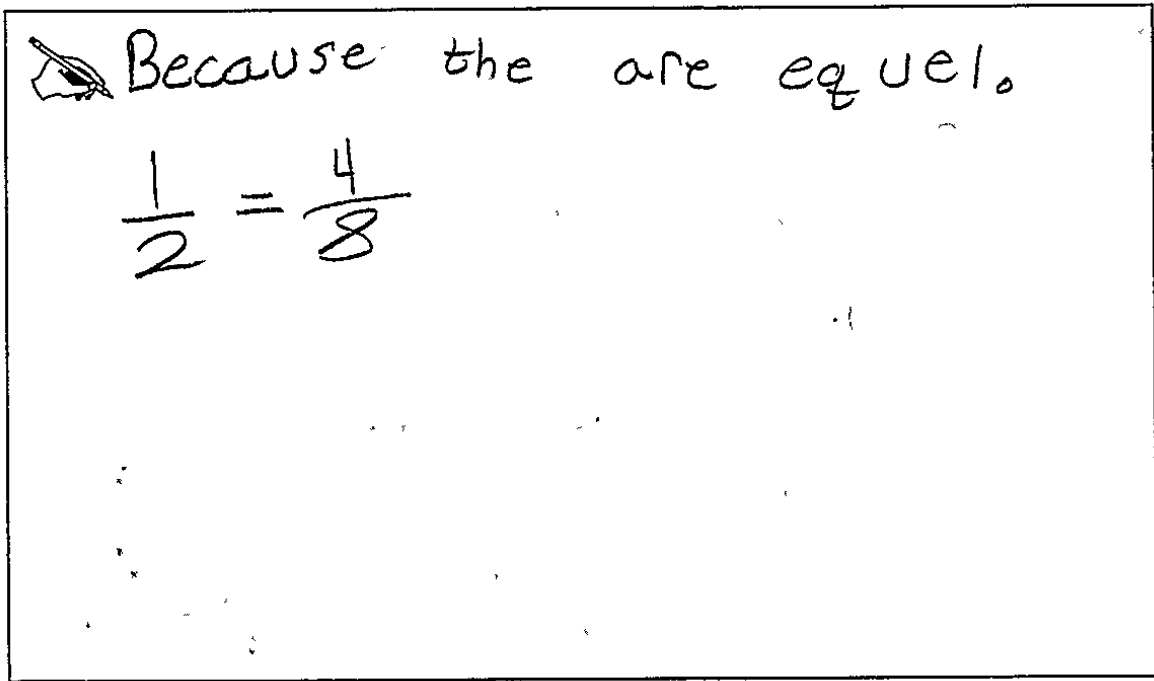 Because the are equel.
1/2 = 4/8